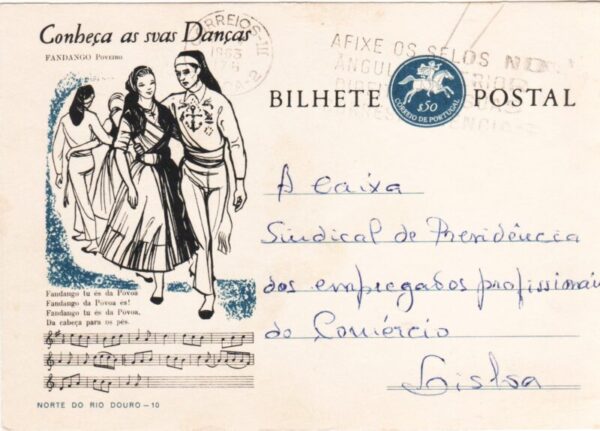 Conheça as suas Danças
FANDANGO Poveiro
CORREIOS-III
1963
AFIXE OS SELOS NO
ÂNGULO
BILHETE POSTAL
$50
CORREIO DE PORTUGAL
A Caixa
Sindical de Presidência
dos empregados profissionais
do Comércio
Lisboa
Fandango tu és da Póvoa
Fandango da Póvoa és!
Fandango tu és da Póvoa,
Da cabeça para os pés.
NORTE DO RIO DOURO — 10